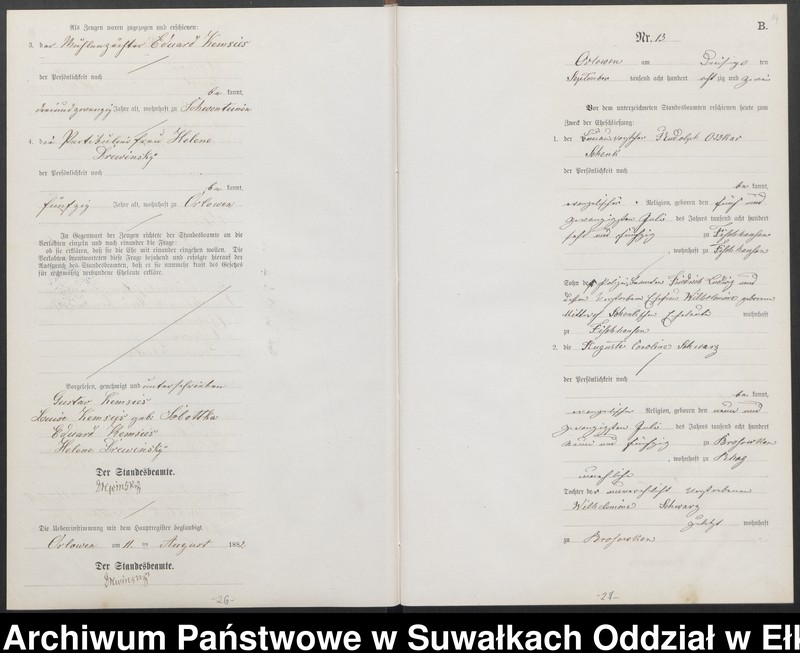 Als Zeugen waren zugezogen und erschienen:
3. der Mühlenpächter Eduard Kemsies
der Persönlichkeit nach
be kannt,
dreiundzwanzig Jahre alt, wohnhaft zu Schwentainen
4. die Partikulierfrau Helene
Drewinsky
der Persönlichkeit nach
be kannt,
fünfzig Jahre alt, wohnhaft zu Orlowen
In Gegenwart der Zeugen richtete der Standesbeamte an die
Verlobten einzeln und nach einander die Frage:
ob sie erklären, daß sie die Ehe mit einander eingehen wollen. Die
Verlobten beantworteten diese Frage bejahend und erfolgte hierauf der
Ausspruch des Standesbeamten, daß er sie nunmehr kraft des Gesetzes
für rechtmäßig verbundene Eheleute erkläre.
Vorgelesen, genehmigt und unterschrieben
Gustav Kemsies
Louise Kemsies geb. Sobottka
Eduard Kemsies
Helene Drewinsky
Der Standesbeamte.
Drewinsky
Die Uebereinstimmung mit dem Hauptregister beglaubigt
Orlowen am 11. ten August 1882
Der Standesbeamte.
Drewinsky
-26-
B.
Nr. 13
Orlowen am Dreißigs ten
September tausend acht hundert acht zig und zwei
Vor dem unterzeichneten Standesbeamten erschienen heute zum
Zweck der Eheschließung:
1. der Rudolph Oskar
Schenk
der Persönlichkeit nach
be kannt,
evangelischer Religion, geboren den fünf und
zwanzigsten Juli des Jahres tausend acht hundert
sechs und fünfzig zu Fischhausen
, wohnhaft zu Fischhausen
Sohn des Friedrich Ludwig und
dessen verstorbene Ehefrau Wilhelmine geborene
Schenkschen Eheleute wohnhaft
zu Fischhausen
2. die Auguste Caroline Schwarz
der Persönlichkeit nach
be kannt,
evangelischer Religion, geboren den neun und
zwanzigsten Juli des Jahres tausend acht hundert
neun und fünfzig zu Brosowken
, wohnhaft zu
Tochter der unverehelicht verstorbenen
Wilhelmine Schwarz
zuletzt wohnhaft
zu Brosowken
Archiwum Państwowe w Suwałkach Oddział w Ełk